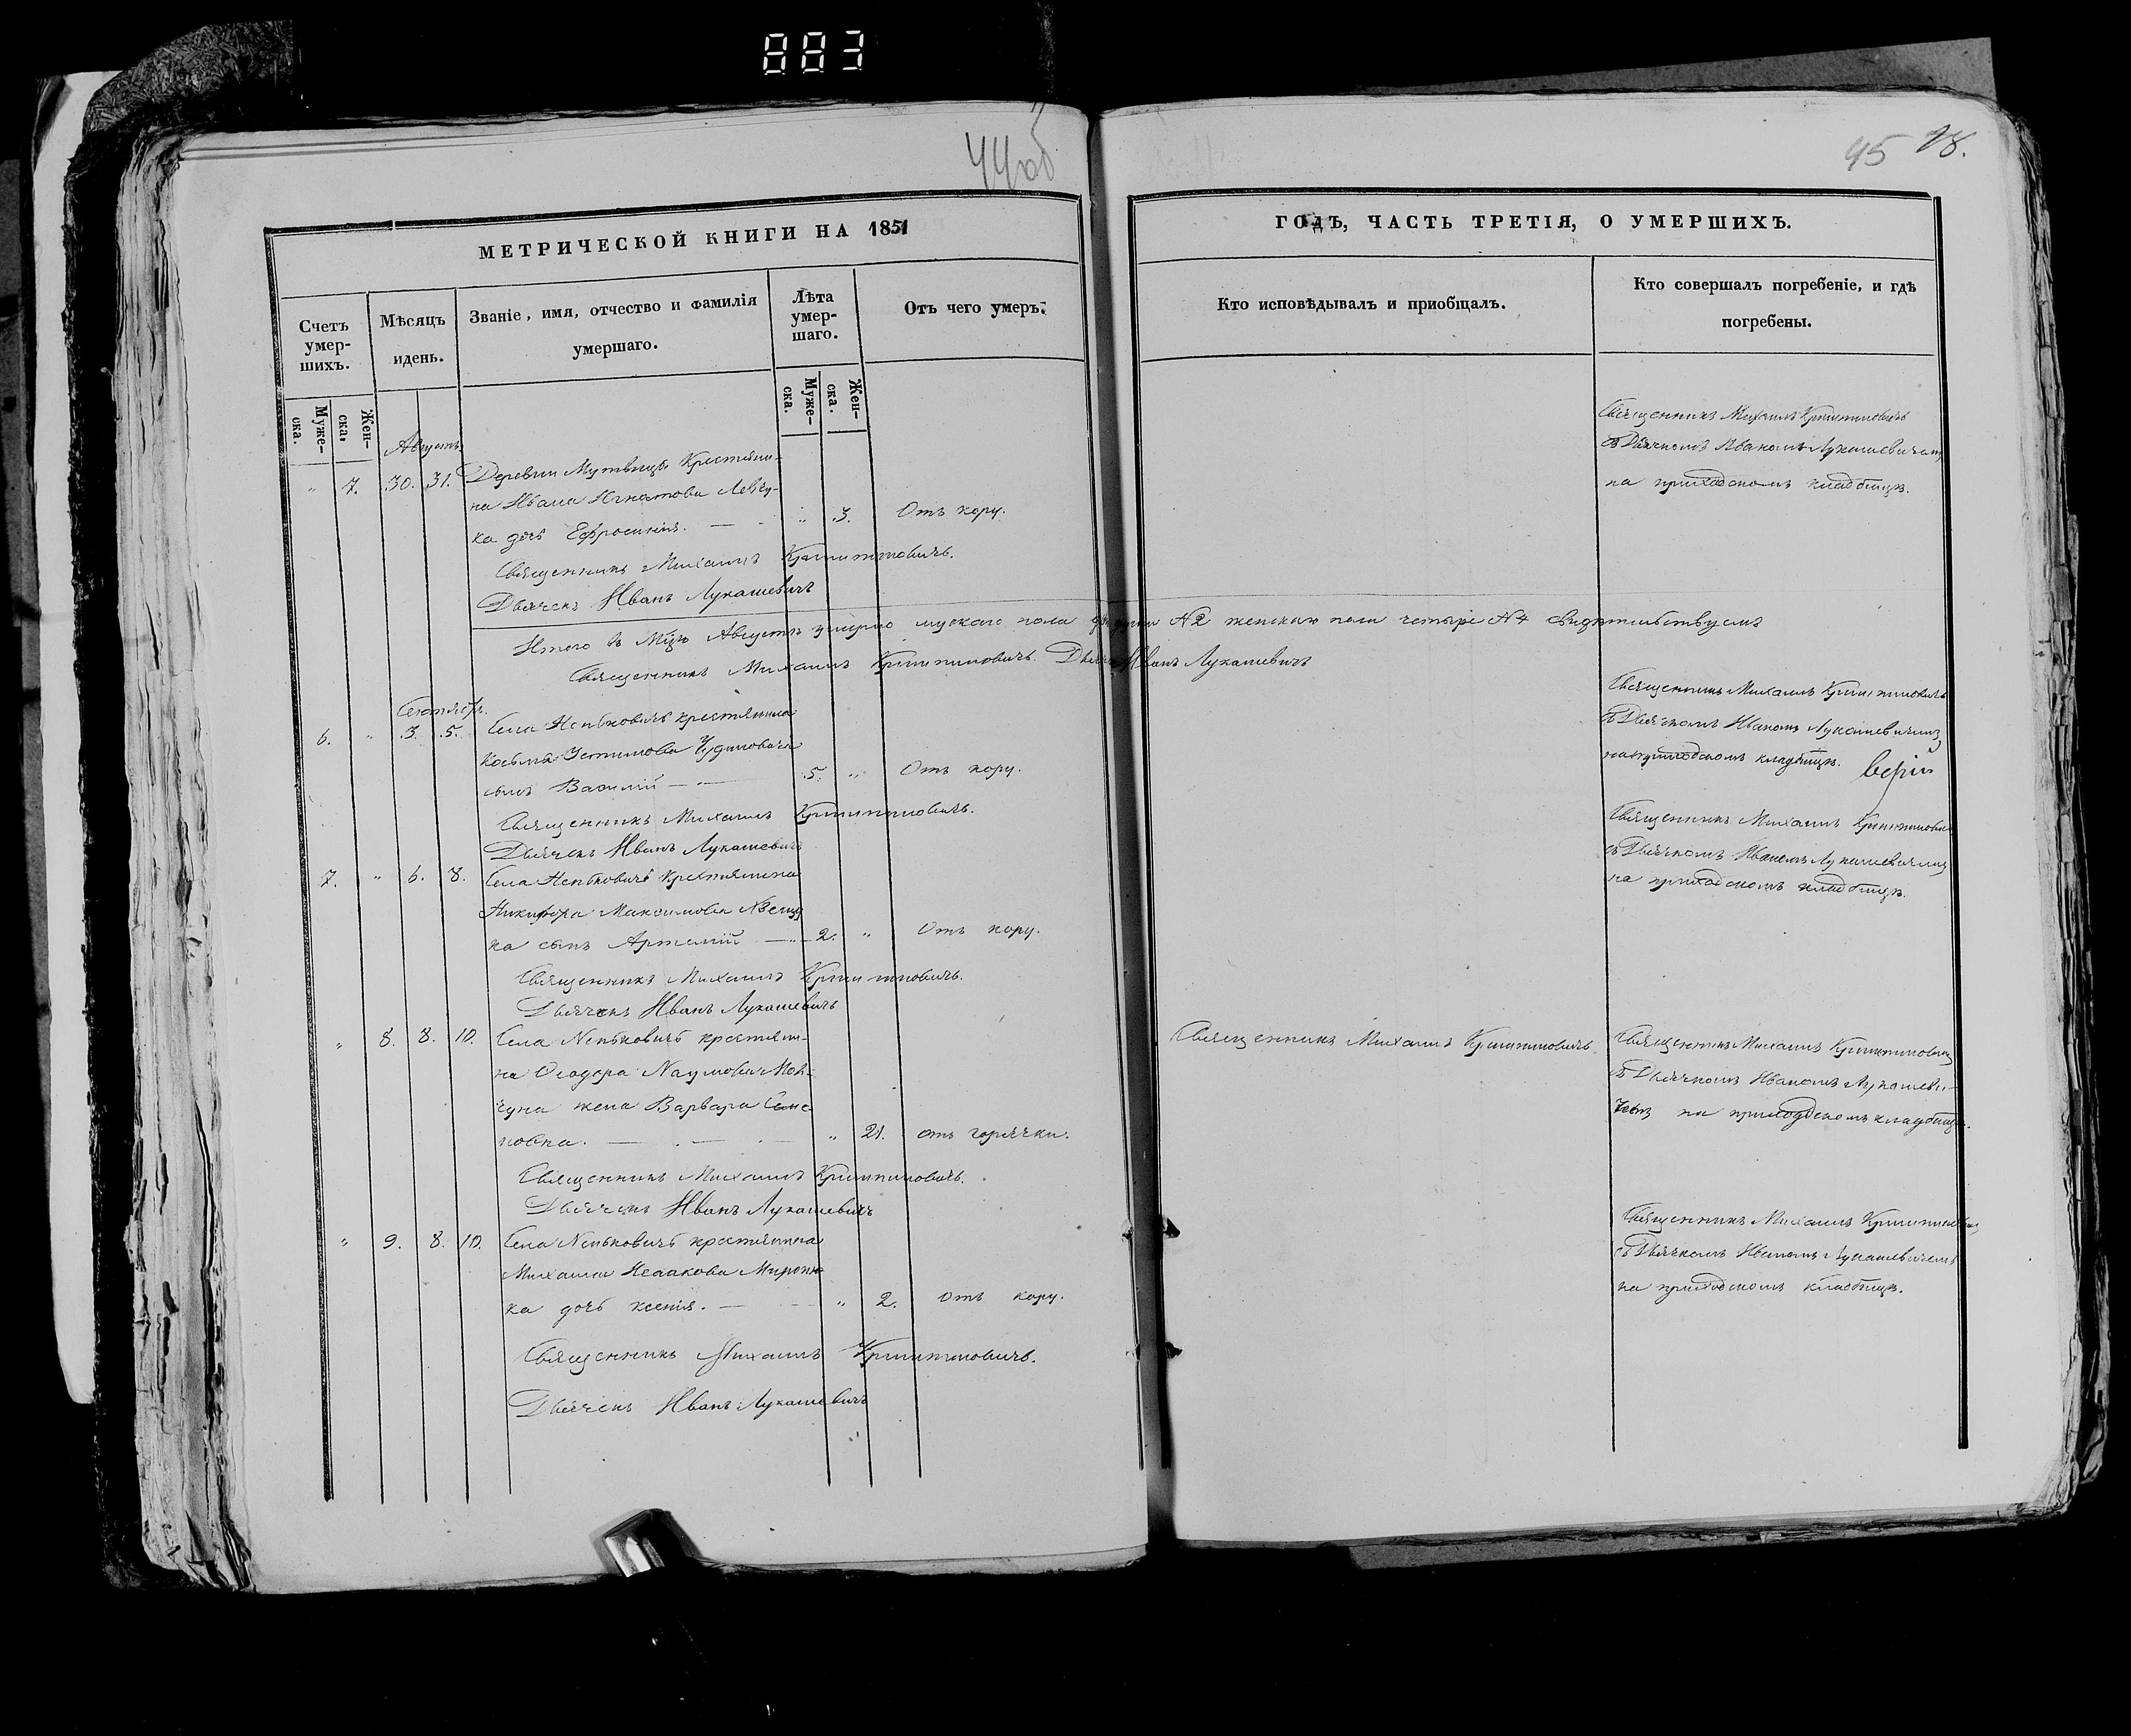 883
44об
45 78.
МЕТРИЧЕСКОЙ КНИГИ НА 1851
ГОДЪ, ЧАСТЬ ТРЕТІЯ, О УМЕРШИХЪ.
Счетъ умер-шихъ.
Мѣсяцъ идень.
Званіе, имя, отчество и фамилія умершаго.
Лѣта умер-шаго.
Отъ чего умеръ.
Кто исповѣдывалъ и приобщалъ.
Кто совершалъ погребеніе, и гдѣ погребены.
Муже-ска.
Жен-ска.
Муже-ска.
Жен-ска.
Августъ
" 7. 30. 31. Деревни Мутвицы Крестьяни-
на Ивана Игнатова Левчу-
ка дочь Ефросинія. " 3. Отъ кору.
Священникъ Михаилъ
Дьячекъ Иванъ Лукашевичъ
Священникъ Михаилъ
съ Дьячкомъ Иваномъ Лукашевичемъ
на приходскомъ кладбищѣ.
Итого въ Мцѣ Августѣ умерло мускаго пола N 2 женскаго пола четыре N 4 свидѣтельствуемъ
Священникъ Михаилъ Дьячекъ Иванъ Лукашевичъ
Сентябрь.
6. " 3. 5. Села крестьянина
Косьмы Устимова
сынъ Василій 5. " Отъ кору.
Священникъ Михаилъ
Дьячекъ Иванъ Лукашевичъ
Священникъ Михаилъ
съ Дьячкомъ Иваномъ Лукашевичемъ
на приходскомъ кладбищѣ.
7. " 6. 8. Села крестьянина
Никифора Максимова
ка сынъ Артемій 2. " Отъ кору.
Священникъ Михаилъ
Дьячекъ Иванъ Лукашевичъ
Священникъ Михаилъ
съ Дьячкомъ Иваномъ Лукашевичемъ
на приходскомъ кладбищѣ.
" 8. 8. 10. Села крестьяни-
на Ѳеодора Наумова
жена Варвара Семе-
новна. " 21. отъ горячки.
Священникъ Михаилъ
Дьячекъ Иванъ Лукашевичъ
Священникъ Михаилъ
Священникъ Михаилъ
съ Дьячкомъ Иваномъ Лукашеви-
чемъ на приходскомъ кладбищѣ.
" 9. 8. 10. Села крестьянина
Михаила Исаакова Мироню-
ка дочь Ксенія. " 2. отъ кору.
Священникъ Михаилъ
Дьячекъ Иванъ Лукашевичъ
Священникъ Михаилъ
съ Дьячкомъ Иваномъ Лукашевичемъ
на приходскомъ кладбищѣ.